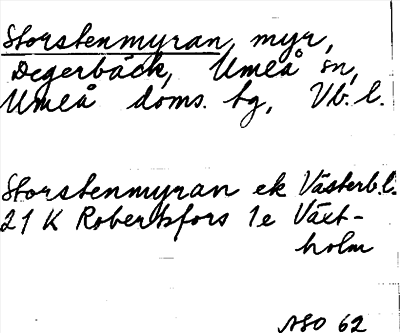 Storstenmyran, myr,
Degerbäck, Umeå sn,
Umeå doms. tg, Vb. l.
Storstenmyran ek Västerb.l.
21 K Robertsfors 1e Växt-
holm
ASO 62